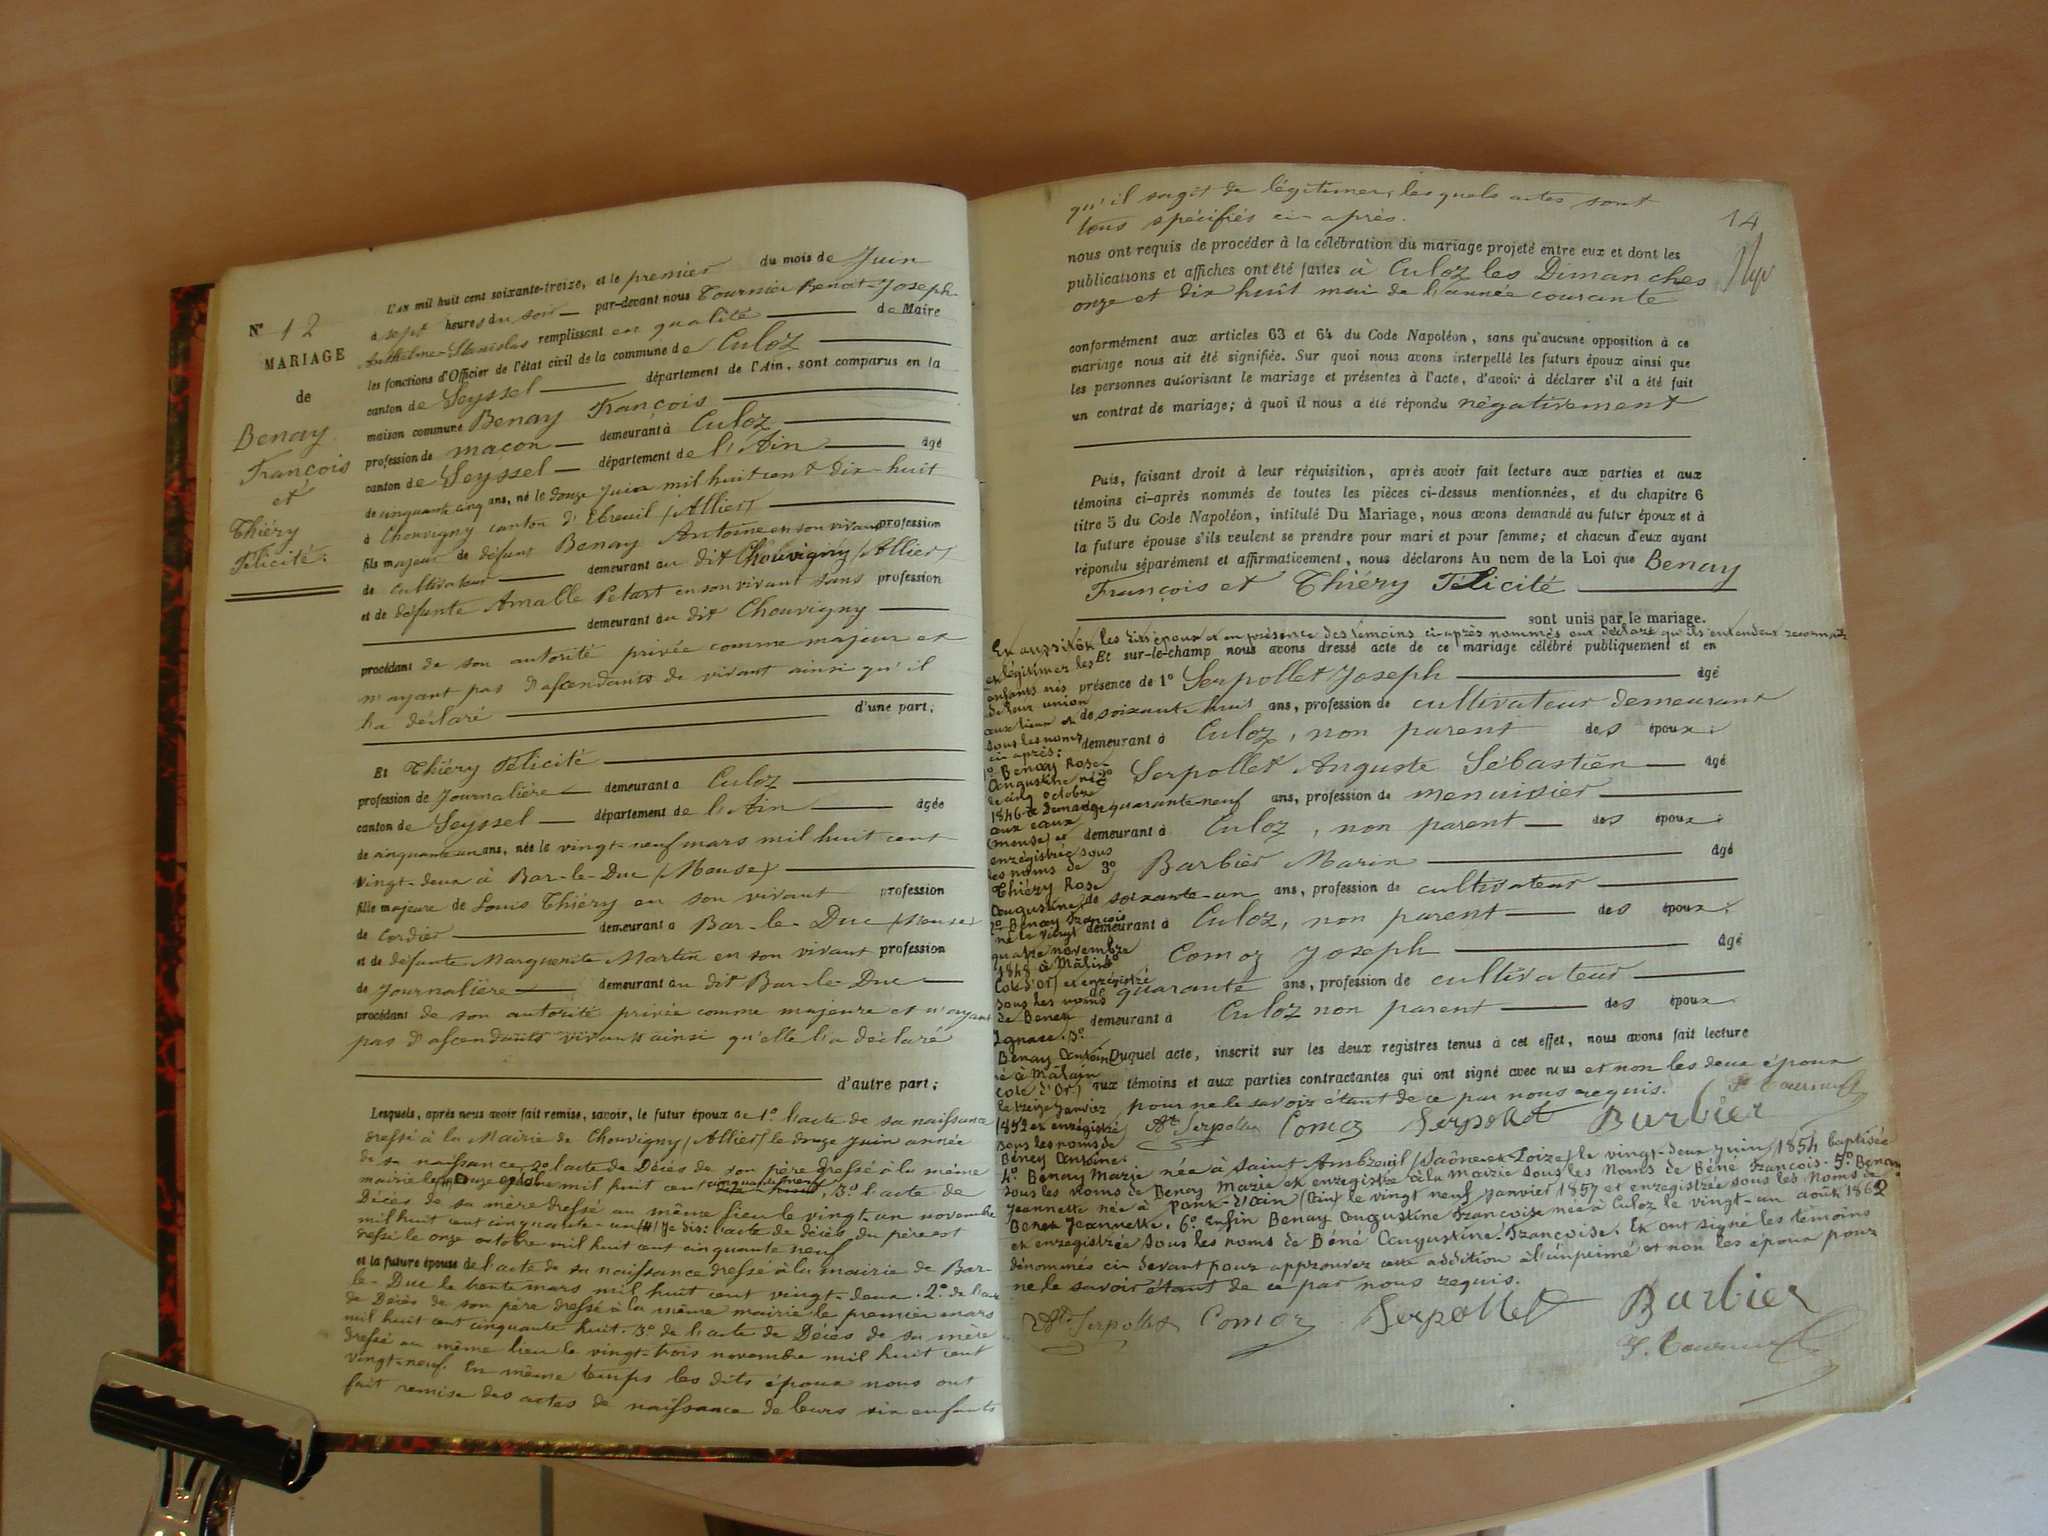 N° 12
MARIAGE
de
Benay
François
et
Thiéry
Félicité.
L'an mil huit cent soixante-treize, et le premier du mois de Juin
à sept heures du soir par-devant nous Tournier Benoit-Joseph
Anthelme-Stanislas remplissant en qualité de Maire
les fonctions d'Officier de l'état civil de la commune de Culoz
canton de Seyssel département de l'Ain, sont comparus en la
maison commune Benay François
profession de maçon demeurant à Culoz
canton de Seyssel département de l'Ain âgé
de cinquante cinq ans, né le douze Juin mil huit cent dix-huit
à Chouvigny canton d'Ebreuil (Allier)
fils majeur de défunt Benay Antoine en son vivant profession
de cultivateur demeurant au dit Chouvigny (Allier)
et de défunte Amable Petart en son vivant sans profession
demeurant au dit Chouvigny
procédant de son autorité privée comme majeur et
n'ayant pas d'ascendants de vivant ainsi qu'il
l'a déclaré
d'une part;
Et Thiéry Félicité
profession de Journalière demeurant à Culoz
canton de Seyssel département de l'Ain âgée
de cinquante un ans, née le vingt-neuf mars mil huit cent
vingt-deux à Bar-le-Duc (Meuse)
fille majeure de Louis Thiéry en son vivant profession
de Cordier demeurant à Bar-le-Duc (Meuse)
et de défunte Marguerite Martin en son vivant profession
de Journalière demeurant au dit Bar-le-Duc
procédant de son autorité privée comme majeure et n'ayant
pas d'ascendants vivants ainsi qu'elle l'a déclaré
d'autre part;
Lesquels, après nous avoir fait remise, savoir, le futur époux de 1° l'acte de sa naissance
dressé à la Mairie de Chouvigny (Allier) le douze Juin année
de sa naissance, 2° l'acte de Décès de son père dressé à la même
mairie le onze octobre mil huit cent cinquante neuf, 3° l'acte de
Décès de sa mère dressé au même lieu le vingt-un novembre
mil huit cent cinquante-un (#) Je dis: l'acte de décès du père est
dressé le onze octobre mil huit cent cinquante neuf
et la future épouse de l'acte de sa naissance dressé à la mairie de Bar-
le-Duc le trente mars mil huit cent vingt-deux. 2° de l'acte
de Décès de son père dressé à la même mairie le premier mars
mil huit cent cinquante huit. 3° de l'acte de Décès de sa mère
dressé au même lieu le vingt-trois novembre mil huit cent
vingt-neuf. En même temps les dits époux nous ont
fait remise des actes de naissance de leurs six enfants
14
qu'il sagit de légitimer, les quels actes sont
tous spécifiés ci-après.
nous ont requis de procéder à la célébration du mariage projeté entre eux et dont les
publications et affiches ont été faites à Culoz les Dimanches
onze et dix huit mai de l'année courante
conformément aux articles 63 et 64 du Code Napoléon, sans qu'aucune opposition à ce
mariage nous ait été signifiée. Sur quoi nous avons interpellé les futurs époux ainsi que
les personnes autorisant le mariage et présentes à l'acte, d'avoir à déclarer s'il a été fait
un contrat de mariage; à quoi il nous a été répondu négativement
Puis, faisant droit à leur réquisition, après avoir fait lecture aux parties et aux
témoins ci-après nommés de toutes les pièces ci-dessus mentionnées, et du chapitre 6
titre 5 du Code Napoléon, intitulé Du Mariage, nous avons demandé au futur époux et à
la future épouse s'ils veulent se prendre pour mari et pour femme; et chacun d'eux ayant
répondu séparément et affirmativement, nous déclarons Au nom de la Loi que Benay
François et Thiéry Félicité
sont unis par le mariage.
Et aussitôt les dits époux et en présence des témoins ci-après nommés ont déclaré qu'ils entendent reconnaître
et légitimer les
enfants nés
de leur union
aux lieux et
sous les noms
ci après:
1° Benay Rose-
Augustine née
le cinq octobre
1846 à Demange
aux eaux
(Meuse) et
enregistrée sous
les noms de
Thiéry Rose
Augustine.
2° Benay François
né le vingt
quatre novembre
1848 à Mâlain
(Côte d'Or) et enregistré
sous les noms
de Benet
Ignace. 3°
Benay Antoine
né à Mâlain
(Côte d'Or)
le treize Janvier
1852 et enregistré
sous les noms de
Béney Antoine.
Et sur-le-champ nous avons dressé acte de ce mariage célébré publiquement et en
présence de 1° Serpollet Joseph âgé
de soixante-huit ans, profession de cultivateur demeurant
demeurant à Culoz, non parent des époux.
2° Serpollet Auguste Sébastien âgé
de quarante neuf ans, profession de menuisier
demeurant à Culoz, non parent des époux.
3° Barbier Marin âgé
de soixante-un ans, profession de cultivateur
demeurant à Culoz, non parent des époux.
4° Comoz Joseph âgé
de quarante ans, profession de cultivateur
demeurant à Culoz non parent des époux
Duquel acte, inscrit sur les deux registres tenus à cet effet, nous avons fait lecture
aux témoins et aux parties contractantes qui ont signé avec nous et non les deux époux
pour ne le savoir étant de ce par nous requis.
Serpollet Comoz Serpollet Barbier
4° Benay Marie née à Saint-Ambreuil (Saône-et-Loire) le vingt-deux juin 1854 baptisée
sous les noms de Benay Marie et enregistrée à la mairie sous les noms de Béné François. 5° Benay
Jeannette née à Pont-d'Ain (Ain) le vingt neuf janvier 1857 et enregistrée sous les noms de
Benet Jeannette. 6° Enfin Benay Augustine Françoise née à Culoz le vingt-un août 1862
et enregistrée sous les noms de Béné Augustine Françoise. Et ont signé les témoins
dénommés ci devant pour approuver cette addition à l'imprimé et non les époux pour
ne le savoir étant de ce par nous requis.
Serpollet Comoz Serpollet Barbier